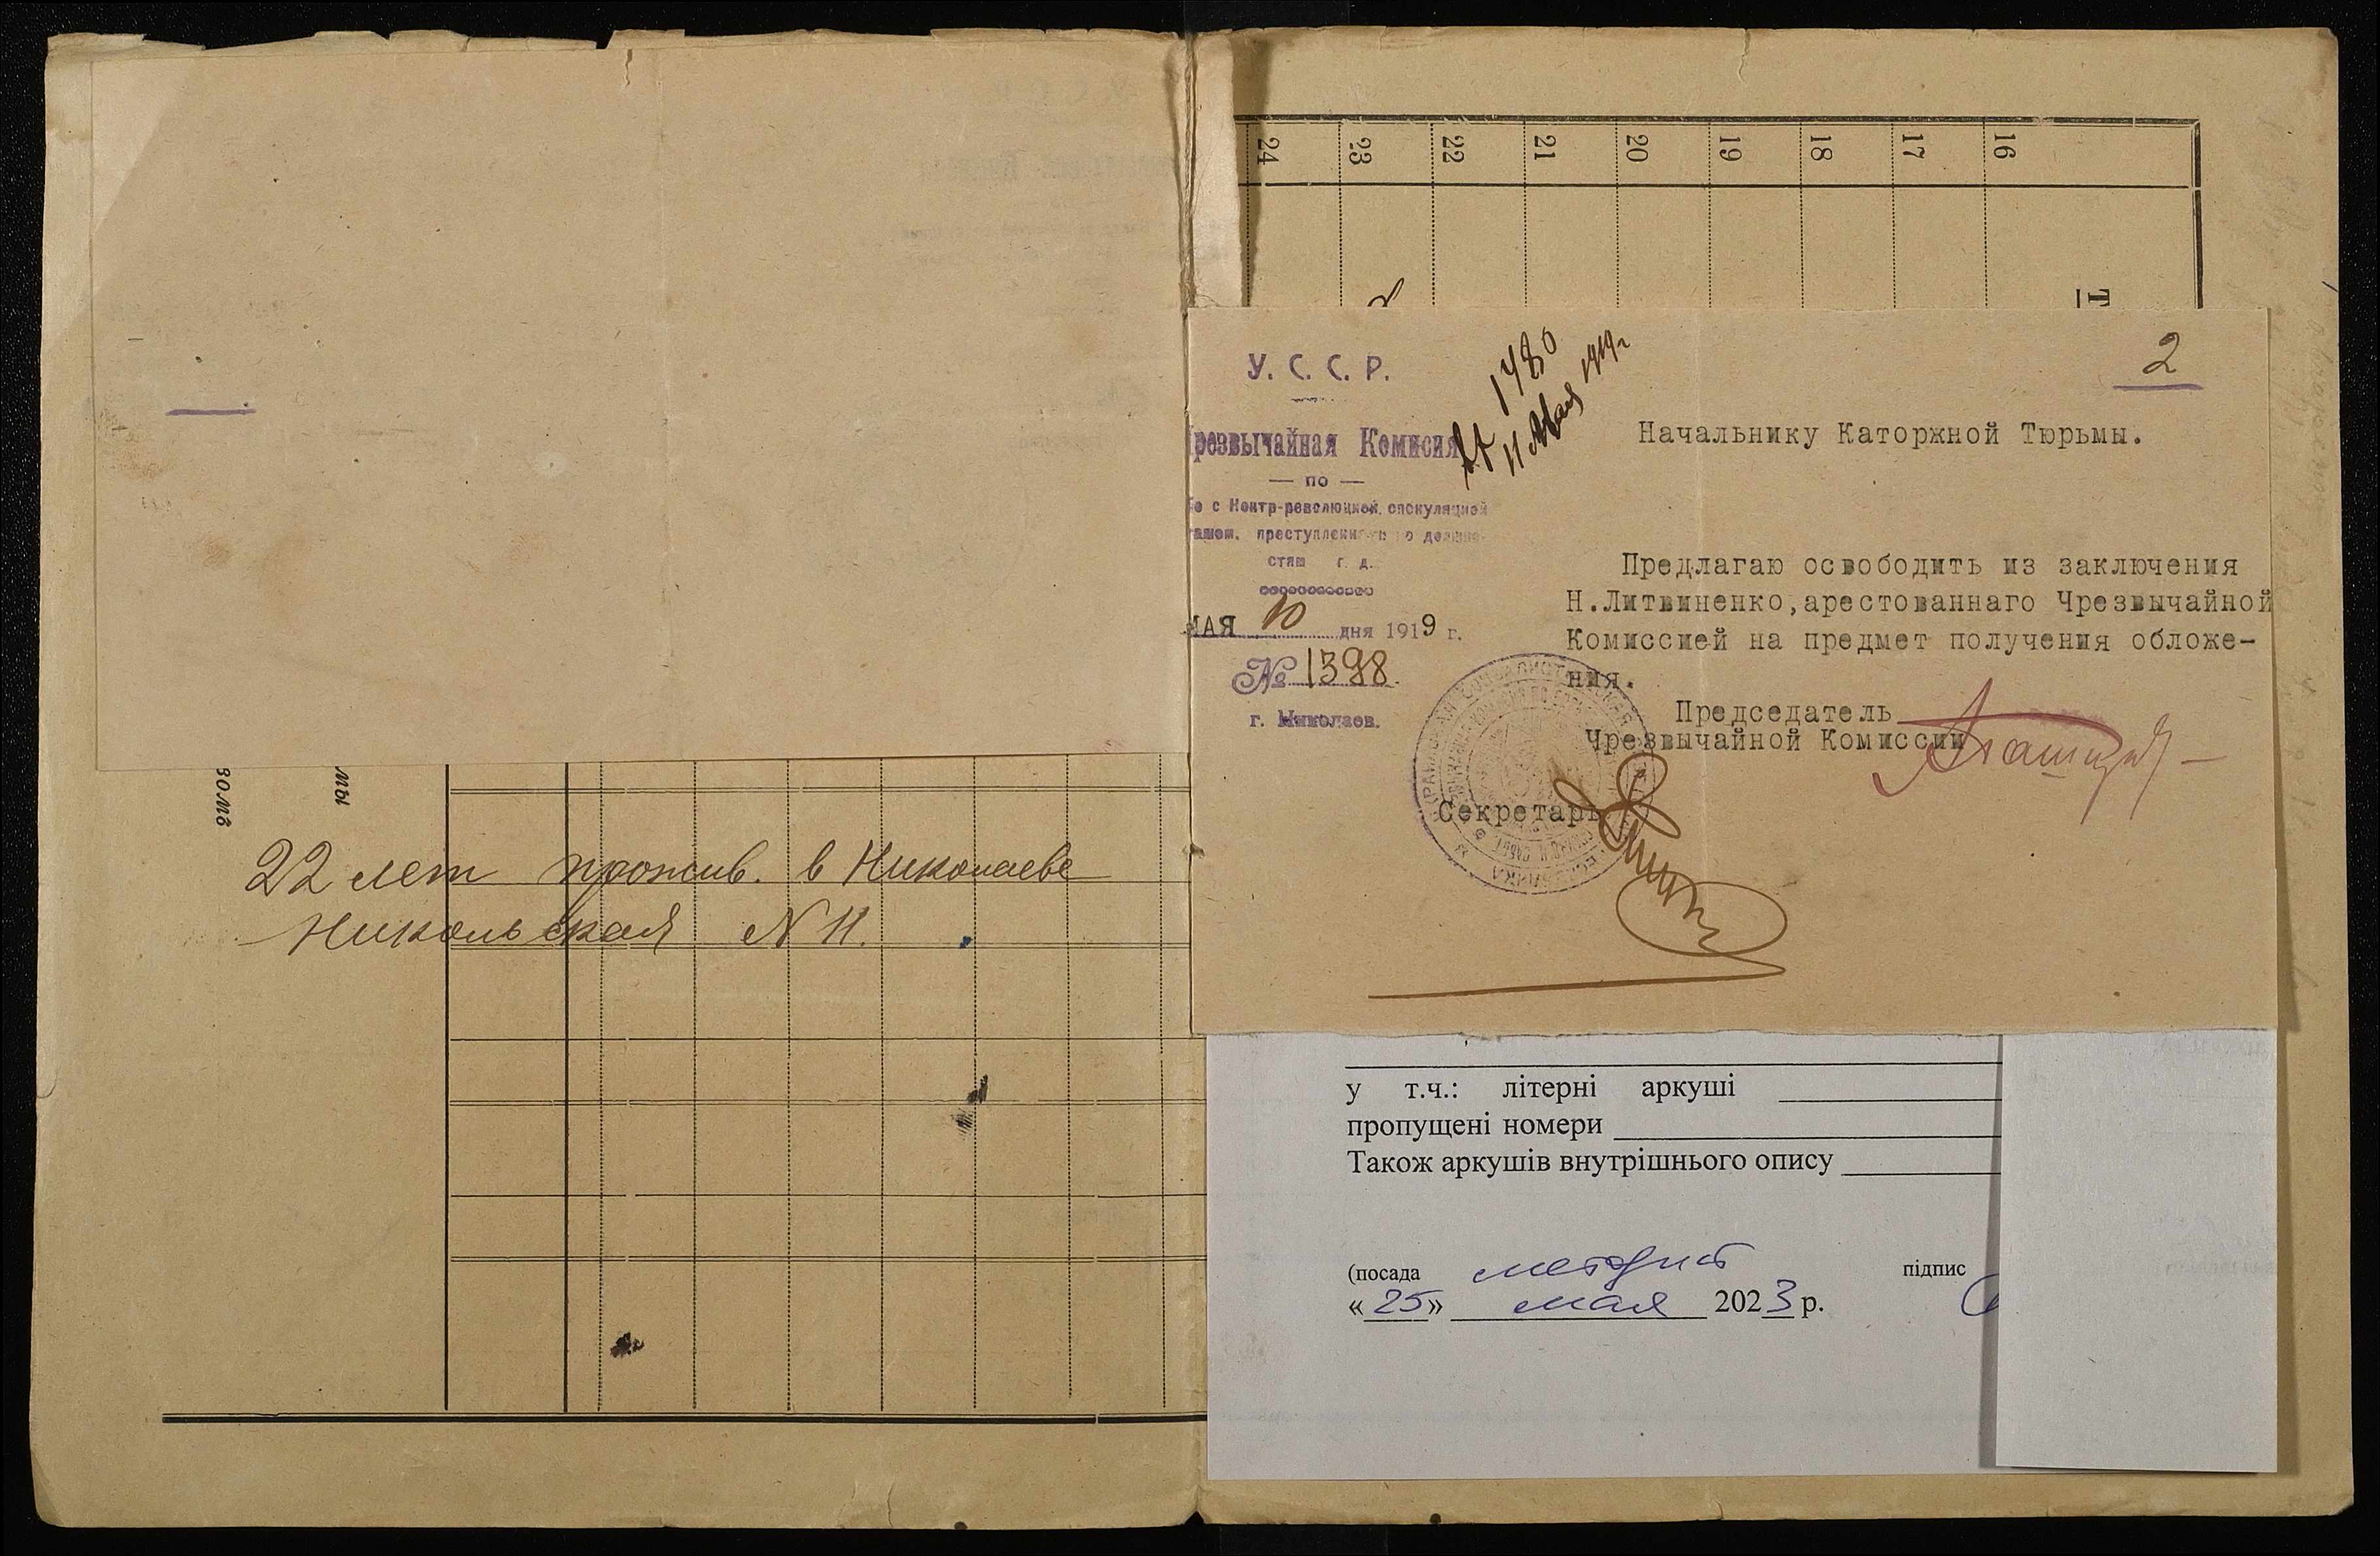 зомъ
мы
22 лет прожив. в Николаеве
Никольская № 11.
24 23 22 21 20 19 18 17 16
Т
2
У. С. С. Р.
№ 1480
11 Мая 1919 г
резвычайная Комисия
— по —
бе с Контр-революцией, спекуляцией
ажем, преступлени о должно-
стям г. д.
МАЯ 10 дня 1919 г.
№ 1398.
г. Николаев.
Начальнику Каторжной Тюрьмы.
Предлагаю освободить из заключения
Н.Литвиненко,арестованнаго Чрезвычайной
Комиссией на предмет получения обложе-
ния.
Председатель
Чрезвычайной Комиссии
Секретарь
у т.ч.: літерні аркуші
пропущені номери
Також аркушів внутрішнього опису
(посада методист підпис
«25» мая 2023 р.